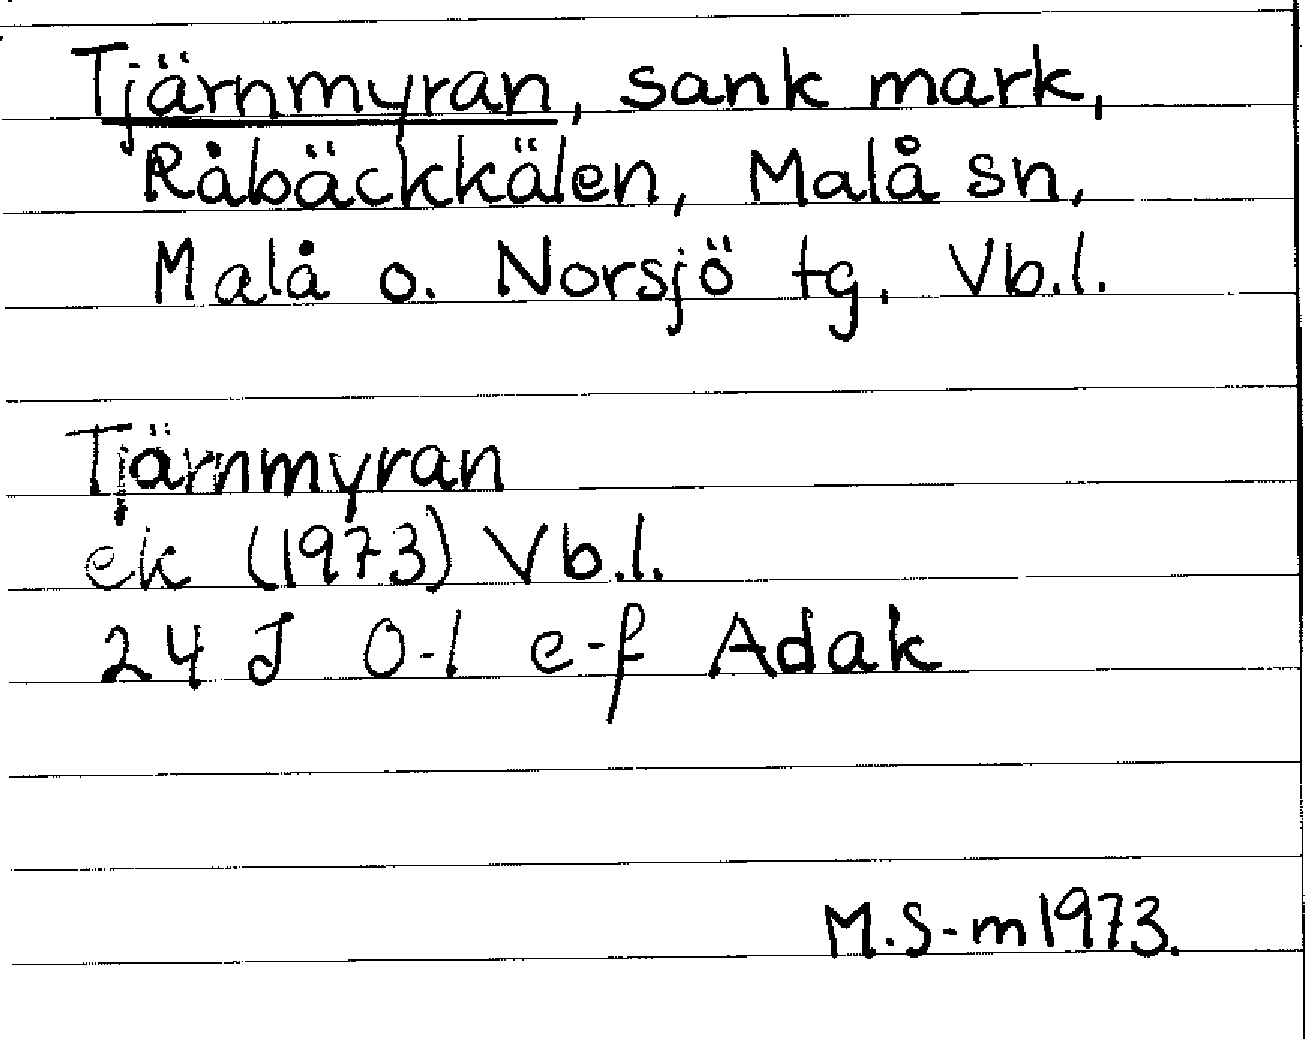 Tjärnmyran, sank mark,
Råbäckkälen, Malå sn,
Malå o. Norsjö tg, Vb.l.
Tjärnmyran
ek (1973) Vb.l.
24 J 0-1 e-f Adak
M.S-m 1973.